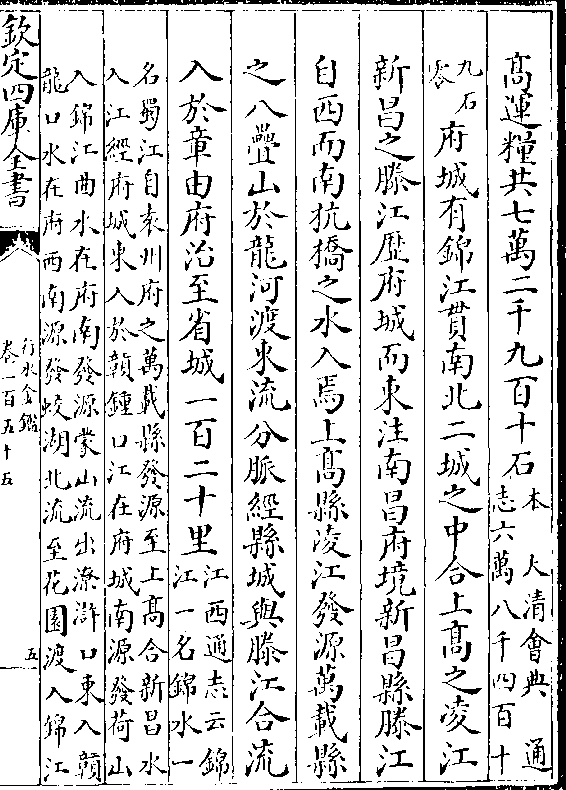 髙運糧共七萬二千九百十石
本 大清會典 通
志六萬八千四百十
九石
零
府城有錦江貫南北二城之中合上髙之凌江
新昌之滕江歴府城而東注南昌府境新昌縣滕江
自西而南抗橋之水入焉上髙縣凌江發源萬載縣
之八疊山於龍河渡東流分脈經縣城與滕江合流
入於章由府治至省城一百二十里
江西通志云錦
江一名錦水一
名蜀江自袁州府之萬載縣發源至上髙合新昌水
入江經府城東入於贛鍾口江在府城南源發荷山
入錦江曲水在府南發源蒙山流出潦滸口東入贛
龍口水在府西南源發蛟湖北流至花園渡入錦江
欽定四庫全書
行水金鑑
卷一百五十五
五